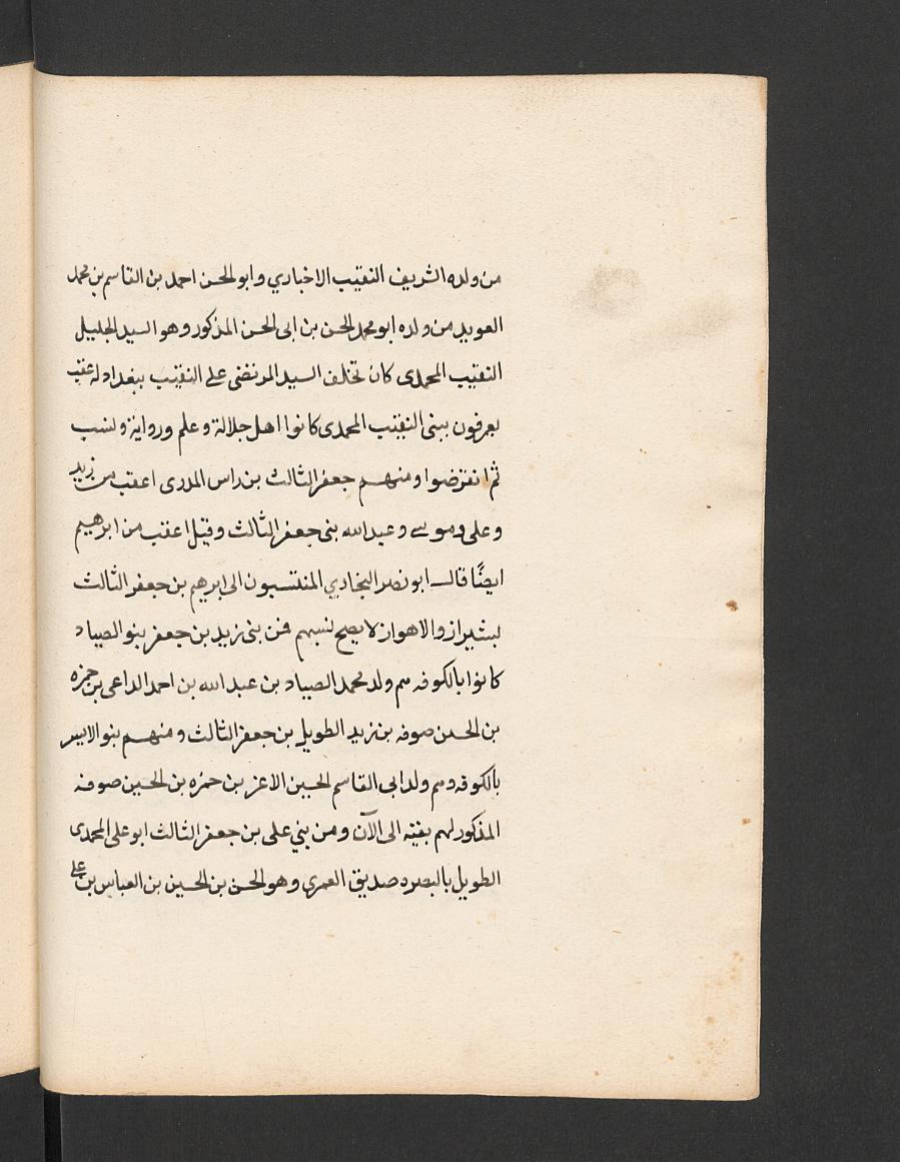 من ولده الشريف النقيب الاخباري وابو الحسن احمد بن القاسم بن محمد
العويد من ولده ابو محمد الحسن بن ابى الحسن المذكور وهو السيد الجليل
النقيب المحمدى كان تخلف السيد المرتضى على النقيب ببغداد له عقب
يعرفون ببنى النقيب المحمدى كانوا اهل جلالة وعلم ورواية ونسب
ثم انقرضوا ومنهم جعفر الثالث بن راس المدرى اعقب من زيد
وعلى وموسى وعبد الله بنى جعفر الثالث وقيل اعقب من ابرهيم
ايضًا قال ابو نصر البخاري المنتسبون الى ابرهيم بن جعفر الثالث
بشيراز والاهواز لا يصح نسبهم فمن بنى زيد بن جعفر بنو الصياد
كانوا بالكوفه هم ولد محمد الصياد بن عبد الله بن احمد الداعى بن حمزه
بن الحسن صوفه بن زيد الطويل بن جعفر الثالث ومنهم بنو الايسر
بالكوفه وهم ولد ابى القاسم الحسين الاعز بن حمزه بن الحسين صوفه
المذكور لهم بقيه الى الآن ومن بني على بن جعفر الثالث ابو على المحمدى
الطويل بالبصره صديق العمري وهو الحسن بن الحسين بن العباس بن على